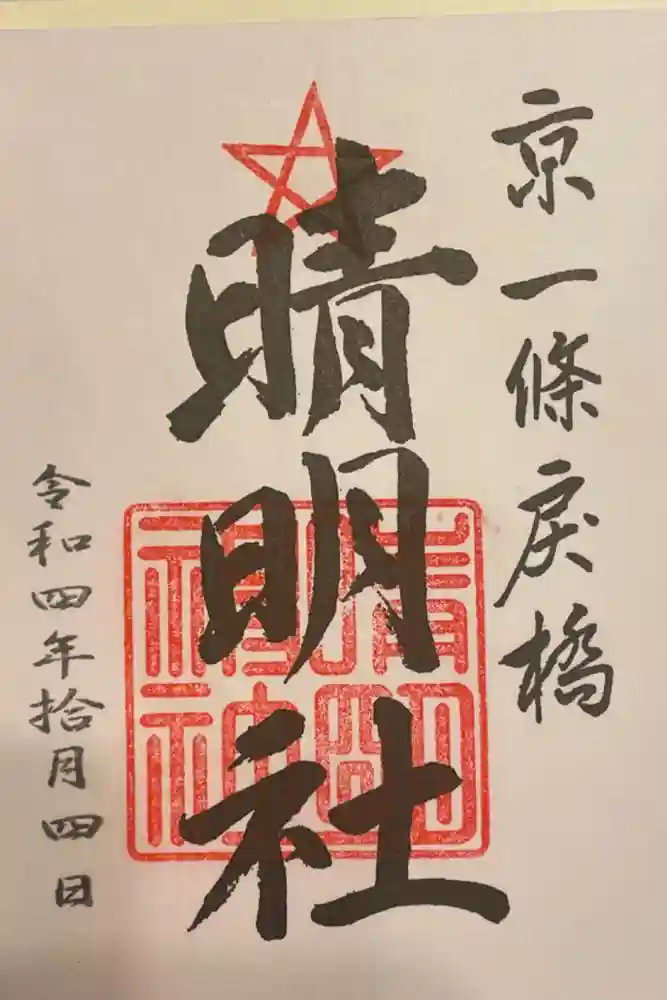 京一條戻橋
晴明社
令和四年拾月四日